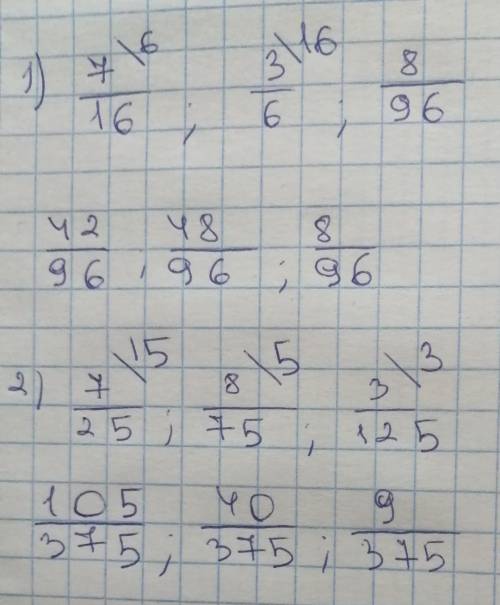 1) 7\6/16 ; 3\16/6 ; 8/96
42/96 ; 48/96 ; 8/96
2) 7\15/25 ; 8\5/75 ; 3\3/125
105/375 ; 40/375 ; 9/375